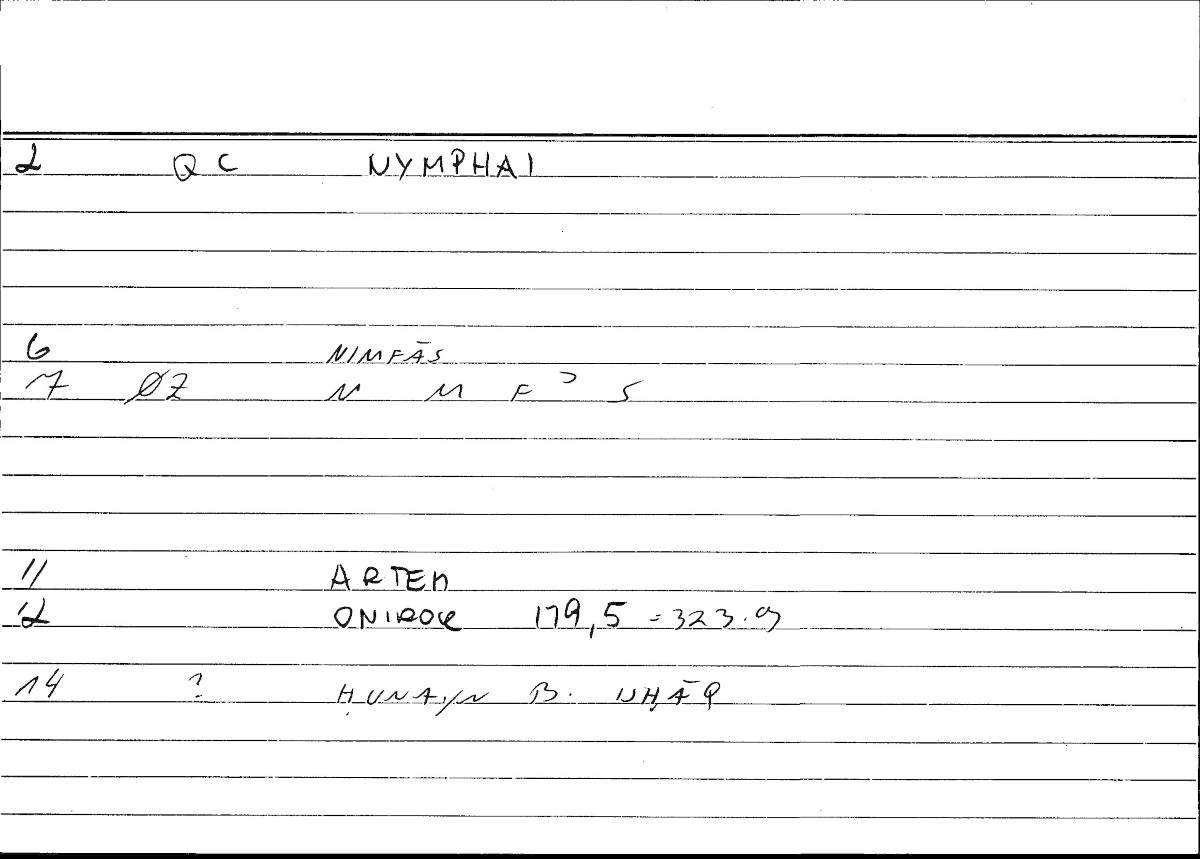 2 QC NYMPHAI
6 NIMFĀS
7 ØZ N M F ʾ S
11 ARTEM
12 ONIROK 179,5 = 323.9
14 ? ḤUNAYN B. ISḤĀQ